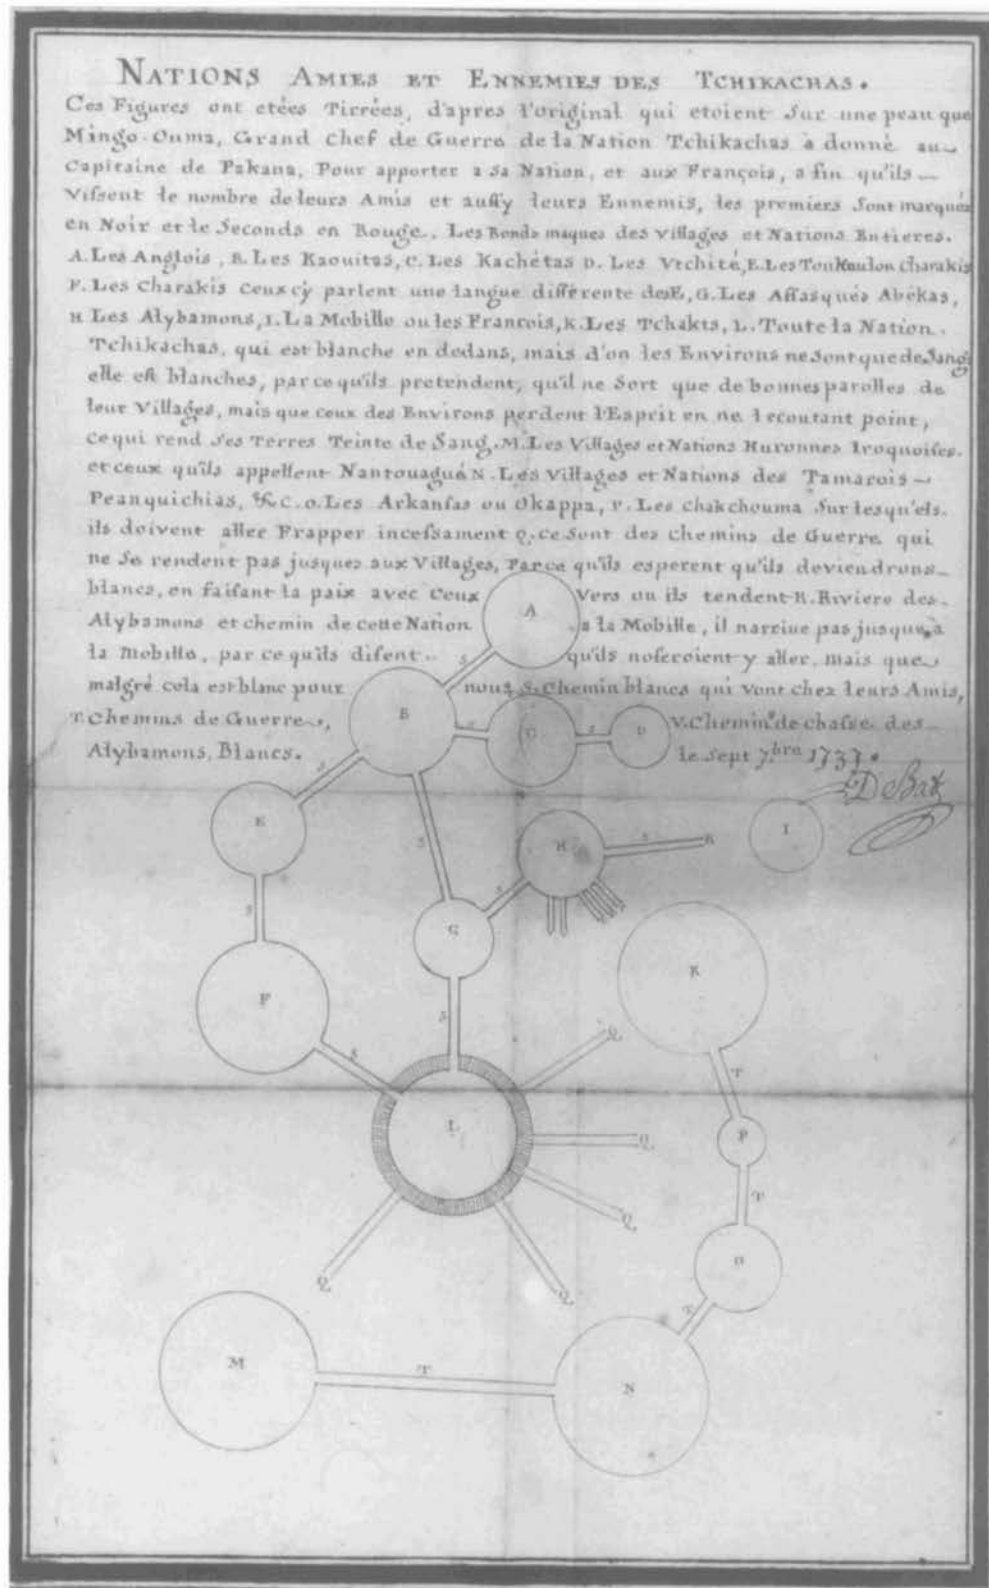 NATIONS AMIES ET ENNEMIES DES TCHIKACHAS.
Ces Figures ont etées Tirrées, d'apres l'original qui etoient sur une peau que
Mingo-Ouma, Grand Chef de Guerre de la Nation Tchikachas à donné au
Capitaine de Pakana, Pour apporter a sa Nation, et aux François, a fin qu'ils
Vissent le nombre de leurs Amis et aussy leurs Ennemis, les premiers sont marqués
en Noir et le Seconds en Rouge. Les Ronds maques des Villages et Nations Entieres.
A. Les Anglois, B. Les Kaouitas, C. Les Kachetas D. Les Vtchité, E. Les Toukaulou Charakis
F. Les Charakis Ceux cy parlent une langue différente des E, G. Les Affasqués Abékas,
H Les Alybamons, I. La Mobille ou les Francois, K. Les Tchakts, L. Toute la Nation
Tchikachas, qui est blanche en dedans, mais d'on les Environs ne sont que de Sang;
elle est blanches, par ce qu'ils pretendent, qu'il ne Sort que de bonnes parolles de
leur Villages, mais que ceux des Environs perdent l'Esprit en ne l'ecoutant point,
ce qui rend ses Terres Teinte de Sang. M. Les Villages et Nations Huronnes Iroquoises.
et ceux qu'ils appellent Nantouagué N. Les Villages et Nations des Tamarois
Peanquichias, &c. O. Les Arkansas ou Okappa, P. Les Chakchouma Sur lesqu'els
ils doivent aller Frapper incessament Q. ce sont des chemins de Guerre qui
ne se rendent pas jusques aux Villages, Parce qu'ils esperent qu'ils deviendrons
blancs, en faisant la paix avec Ceux Vers ou ils tendent R. Riviere des
Alybamons et chemin de cette Nation a la Mobille, il narrive pas jusque à
la Mobille, par ce qu'ils disent qu'ils noseroient y aller, mais que
malgré cela est blanc pour nous S. Chemin blancs qui vont chez leurs Amis,
T. Chemins de Guerre, V. Chemins de chasse des
Alybamons, Blancs. le Sept 7.bre 1737.
De Batz
A
S
B S C S D
S
E S H S R I
S S
G
S K
F S S Q
T
L Q P
T
Q
O
Q Q T
M T N